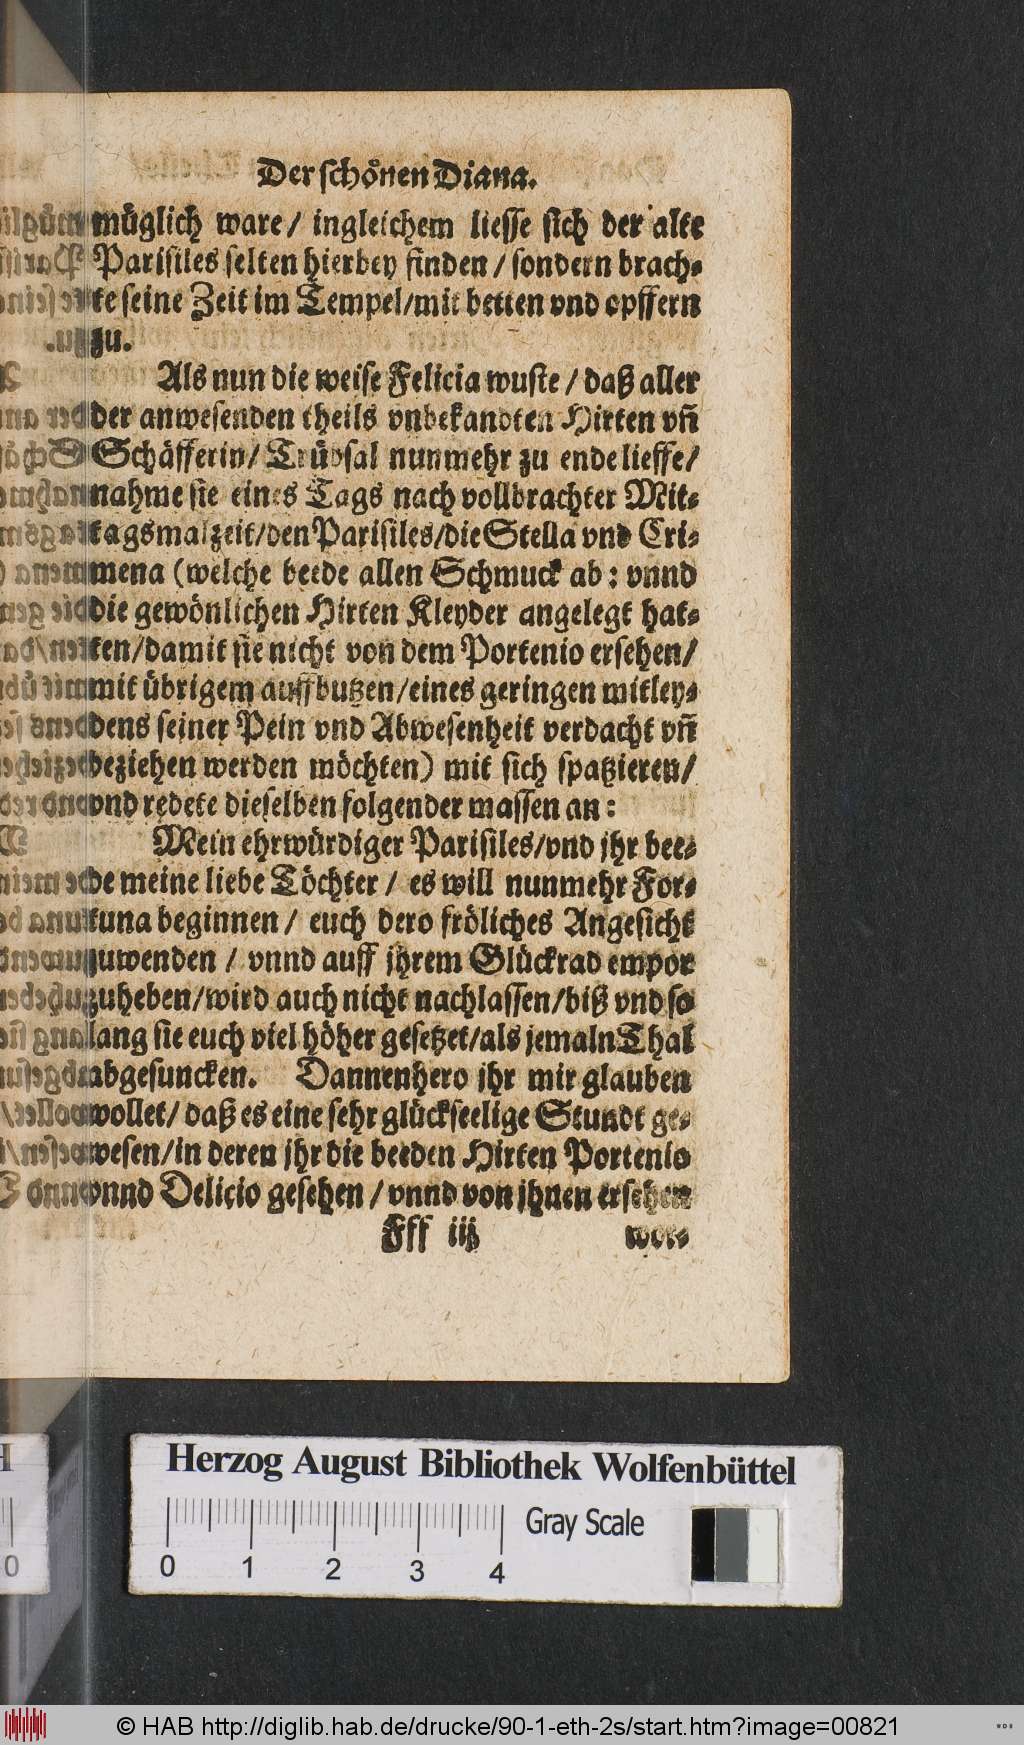 Der schönen Diana.
müglich ware / ingleichem liesse sich der alte
Parisiles selten hierbey finden / sondern brach-
te seine Zeit im Tempel/mit betten vnd opffern
zu.
Als nun die weise Felicia wuste / daß aller
der anwesenden theils vnbekandten Hirten vñ
Schäfferin/ Trübsal nunmehr zu ende lieffe/
nahme sie eines Tags nach vollbrachter Mit-
tagsmalzeit/den Parisiles/die Stella vnd Cri-
mena (welche beede allen Schmuck ab: vnnd
die gewönlichen Hirten Kleyder angelegt hat-
ten/damit sie nicht von dem Portenio ersehen/
mit übrigem auffbutzen/eines geringen mitley-
dens seiner Pein vnd Abwesenheit verdacht vñ
beziehen werden möchten) mit sich spatzieren/
vnd redete dieselben folgender massen an:
Mein ehrwürdiger Parisiles/vnd jhr bee-
de meine liebe Töchter / es will nunmehr For-
tuna beginnen / euch dero fröliches Angesicht
zuwenden / vnnd auff jhrem Glückrad empor
zuheben/wird auch nicht nachlassen/biß vnd so
lang sie euch viel höher gesetzet/als jemaln Thal
abgesuncken. Dannenhero jhr mir glauben
wollet/ daß es eine sehr glückseelige Stundt ge-
wesen/in deren jhr die beeden Hirten Portenio
vnnd Delicio gesehen / vnnd von jhnen ersehen
Fff iij wor-
Herzog August Bibliothek Wolfenbüttel
Gray Scale
0 1 2 3 4
© HAB http://diglib.hab.de/drucke/90-1-eth-2s/start.htm?image=00821